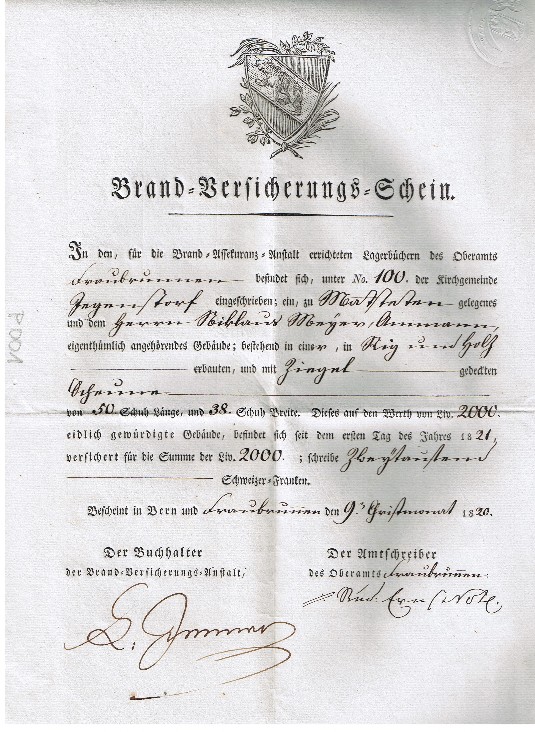 Brand-Versicherungs-Schein.
In den, für die Brand-Assekuranz-Anstalt errichteten Lagerbüchern des Oberamts
Fraubrunnen befindet sich, unter No. 100. der Kirchgemeinde
Jegenstorf eingeschrieben; ein, zu Mattstetten gelegenes
und dem Herrn Niklaus Meyer, Ammann,
eigenthümlich angehörendes Gebäude; bestehend in einer, in Rig und Holz
erbauten, und mit Ziegel gedeckten
Scheune
von 50 Schuh Länge, und 38. Schuh Breite. Dieses auf den Werth von Liv. 2000.
eidlich gewürdigte Gebäude, befindet sich seit dem ersten Tag des Jahres 1821,
versichert für die Summe der Liv. 2000 ; schreibe Zweytausend
Schweizer-Franken.
Bescheint in Bern und Fraubrunnen den 9. Christmonat 1820.
Der Buchhalter
der Brand-Versicherungs-Anstalt,
Der Amtschreiber
des Oberamts Fraubrunnen.
P001